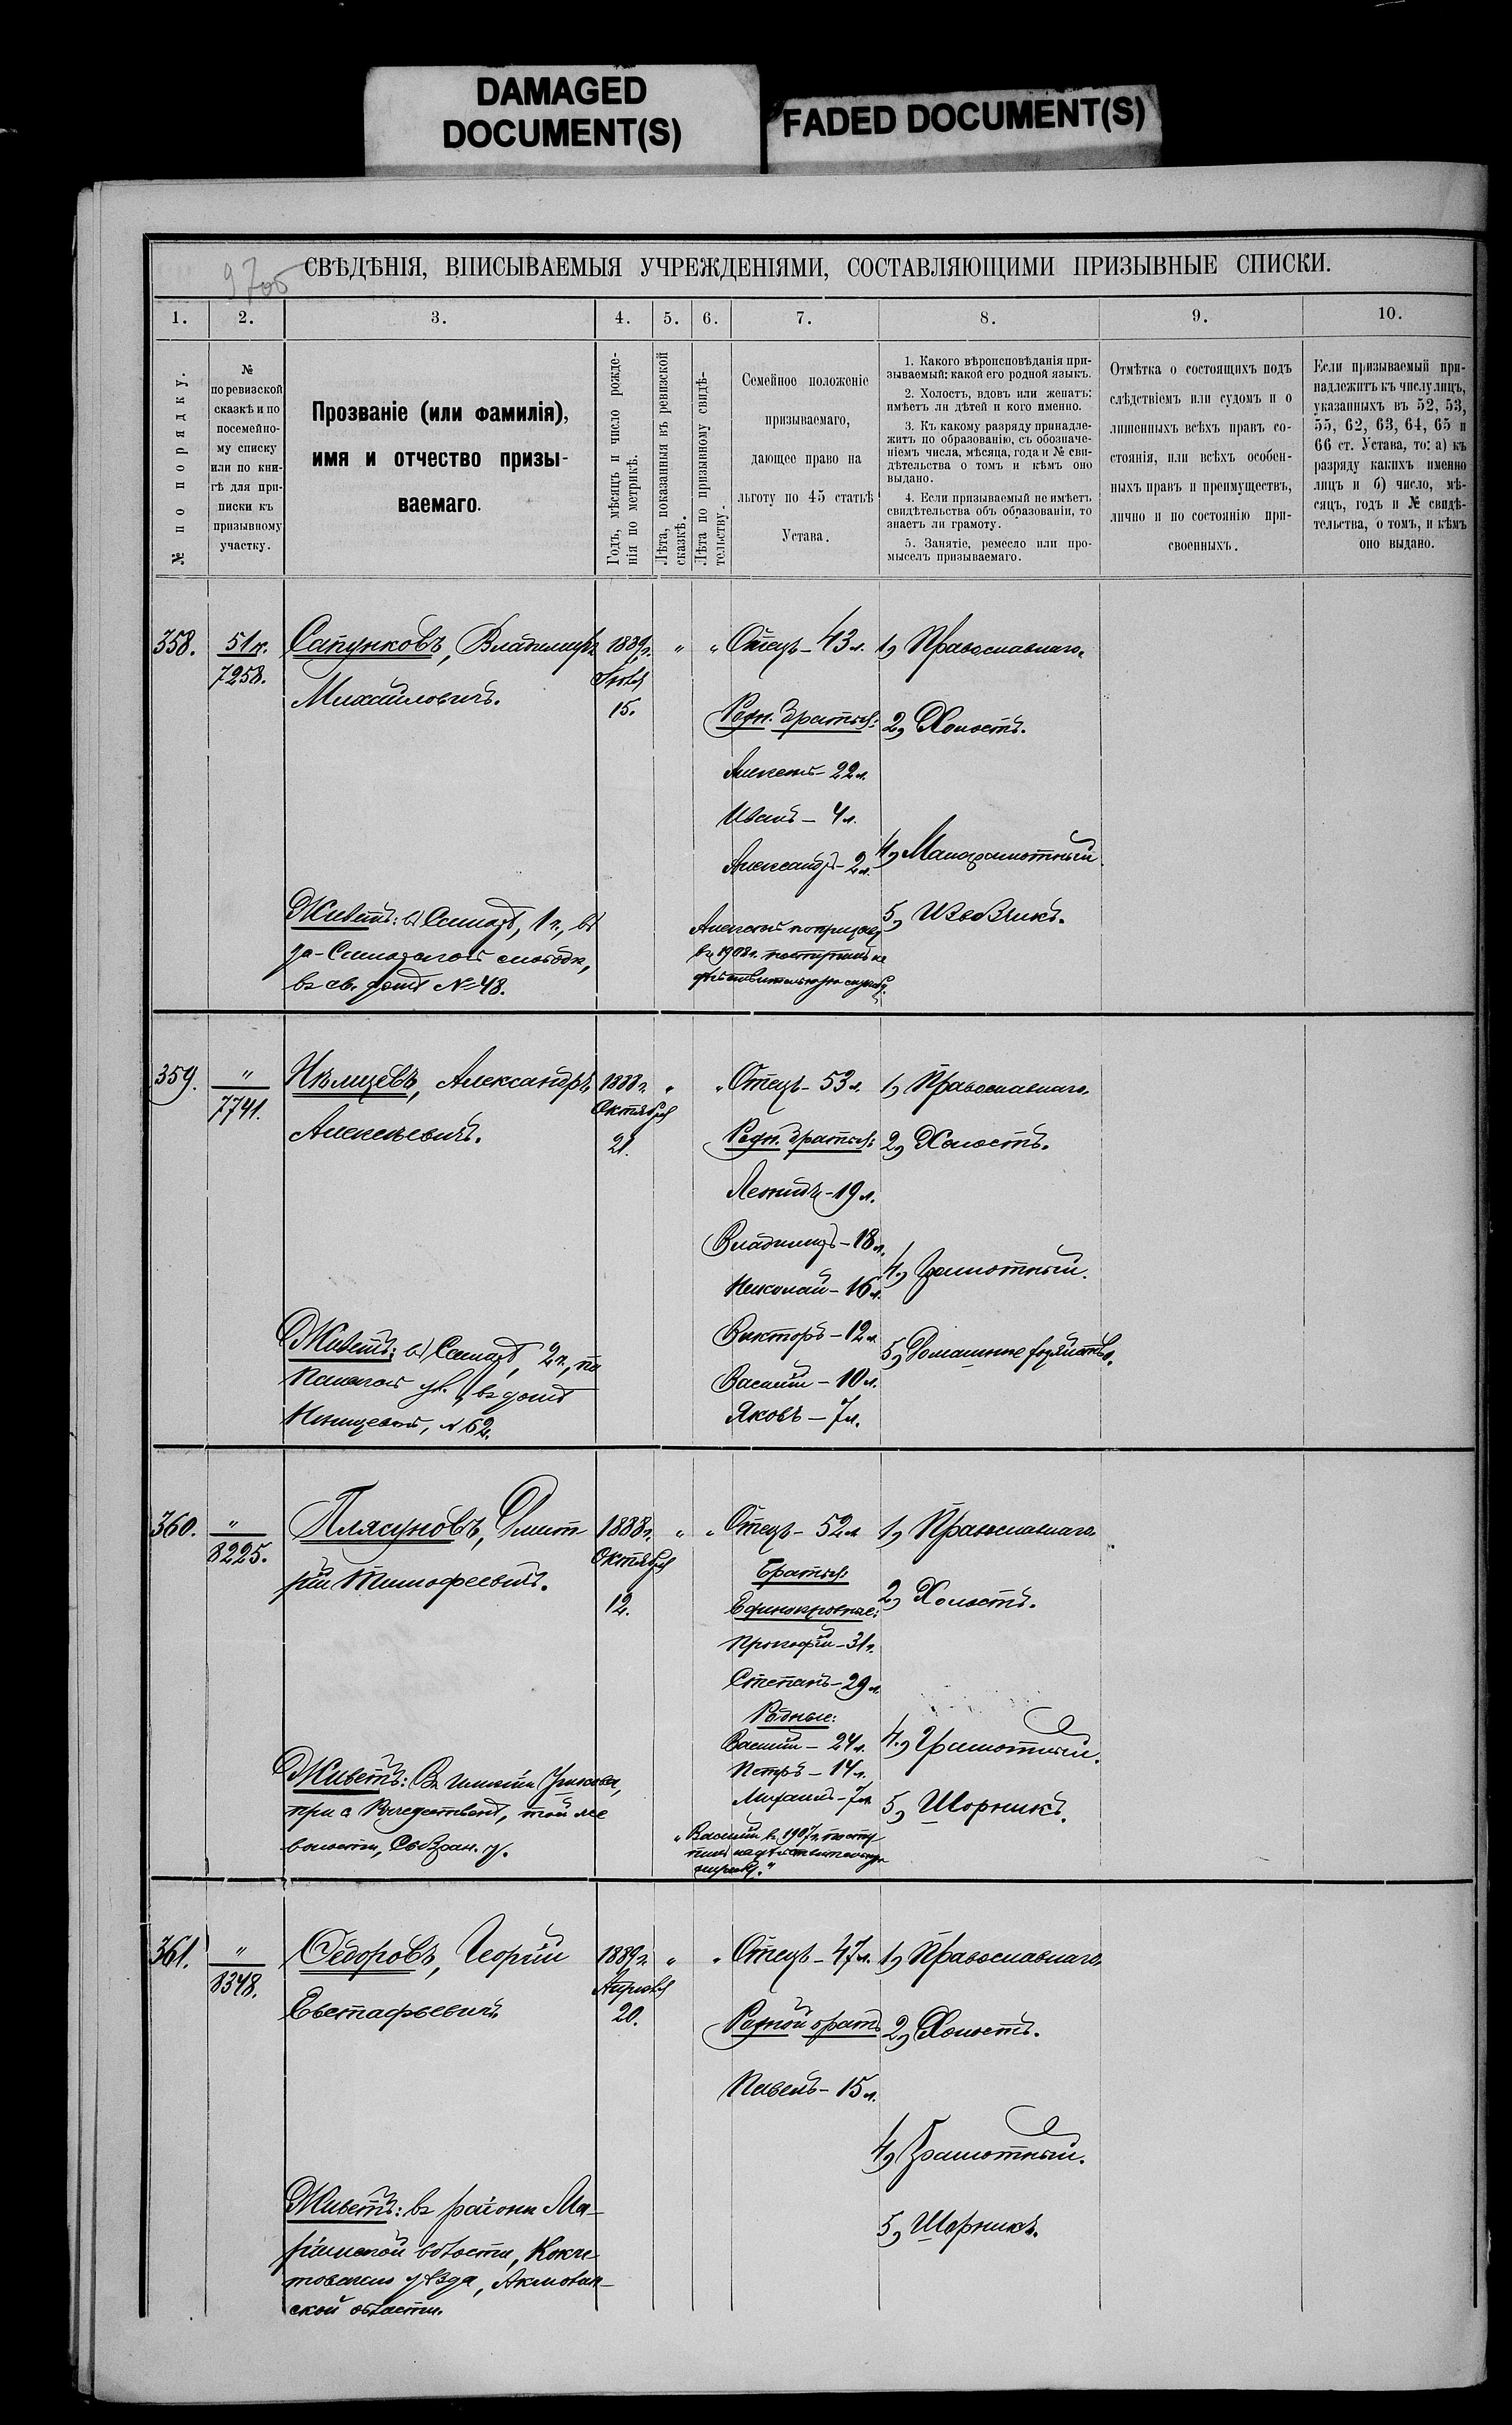 DAMAGED
DOCUMENT(S)
FADED DOCUMENT(S)
СВѢДѢНІЯ, ВПИСЫВАЕМЫЯ УЧРЕЖДЕНІЯМИ, СОСТАВЛЯЮЩИМИ ПРИЗЫВНЫЕ СПИСКИ.
1. 2. 3. 4. 5. 6. 7. 8. 9. 10.
№ по порядку.
№
по ревизской
сказкѣ и по
посемейно-
му списку
или по кни-
гѣ для при-
писки къ
призывному
участку.
Прозваніе (или фамилія),
имя и отчество призы-
ваемаго.
Годъ, мѣсяцъ и число рожде-
нія по метрикѣ.
Лѣта, показанныя въ ревизской
сказкѣ.
Лѣта по призывному свидѣ-
тельству.
Семейное положеніе
призываемаго,
дающее право на
льготу по 45 статьѣ
Устава.
1. Какого вѣроисповѣданія при-
зываемый: какой его родной языкъ.
2. Холостъ, вдовъ или женатъ:
имѣетъ ли дѣтей и кого именно.
3. Къ какому разряду принадле-
житъ по образованію, съ обозначе-
ніемъ числа, мѣсяца, года и № сви-
дѣтельства о томъ и кѣмъ оно
выдано.
4. Если призываемый не имѣетъ
свидѣтельства объ образованіи, то
знаетъ ли грамоту.
5. Занятіе, ремесло или про-
мыселъ призываемаго.
Отмѣтка о состоящихъ подъ
слѣдствіемъ или судомъ и о
лишенныхъ всѣхъ правъ со-
стоянія, или всѣхъ особен-
ныхъ правъ и преимуществъ,
лично и по состоянію при-
своенныхъ.
Если призываемый при-
надлежитъ къ числу лицъ,
указанныхъ въ 52, 53,
55, 62, 63, 64, 65 и
66 ст. Устава, то: а) къ
разряду какихъ именно
лицъ и б) число, мѣ-
сяцъ, годъ и № свидѣ-
тельства, о томъ, и кѣмъ
оно выдано.
358.
7258.
Сапунковъ, Владимиръ
Михайловичъ.
Живетъ: въ Самарѣ, 1 ч., въ
за-Самарской слободк,
въ св. домѣ № 48.
15.
" "
Отецъ - 43 л.
Родн. братья:
Алексѣй - 22 л.
Иванъ - 4 л.
Александръ - 2 л.
1) Православнаго.
2) Холостъ.
4) Малограмотный
5) Извозчикъ.
359.
"
7741.
Нѣмцевъ, Александръ
Алексѣевичъ.
Живетъ: въ Самарѣ, 2 ч., по
ул., въ домѣ
1888 г.
Октября
21.
" "
Отецъ - 53 л.
Родн. братья:
Леонидъ - 19 л.
Владимиръ - 18 л.
Николай - 16 л.
Викторъ - 12 л.
Василій - 10 л.
Яковъ - 7 л.
1) Православнаго.
2) Холостъ.
4) Грамотный.
5) Домашнее хозяйство.
360.
"
8225.
Плясуновъ, Дмит
рій Тимофеевичъ.
Живетъ: Въ имѣніи
при с. Рождествено, той же
волости, Сызран. у.
1888 г.
Октября
12.
" "
Отецъ - 52 л.
Братья:
Единокровные:
Прокофій - 31 л.
Степанъ - 29 л.
Родные:
Василій - 24 л.
Петръ - 14 л.
Михаилъ - 7 л.
"Василій въ 1907 г. посту
пилъ на дѣйствительную
службу."
1) Православнаго.
2) Холостъ.
4) Грамотный.
5) Шорникъ.
361.
"
8348.
Ѳедоровъ, Георгій
Евстафьевичъ.
Живетъ: въ районѣ Ма-
ріинской волости, Кокче
товскаго уѣзда, Акмолин-
ской области.
1889 г.
Апрѣля
20.
" "
Отецъ - 47 л.
Родной братъ
Павелъ - 15 л.
1) Православнаго.
2) Холостъ.
4) Грамотный.
5) Шорникъ.